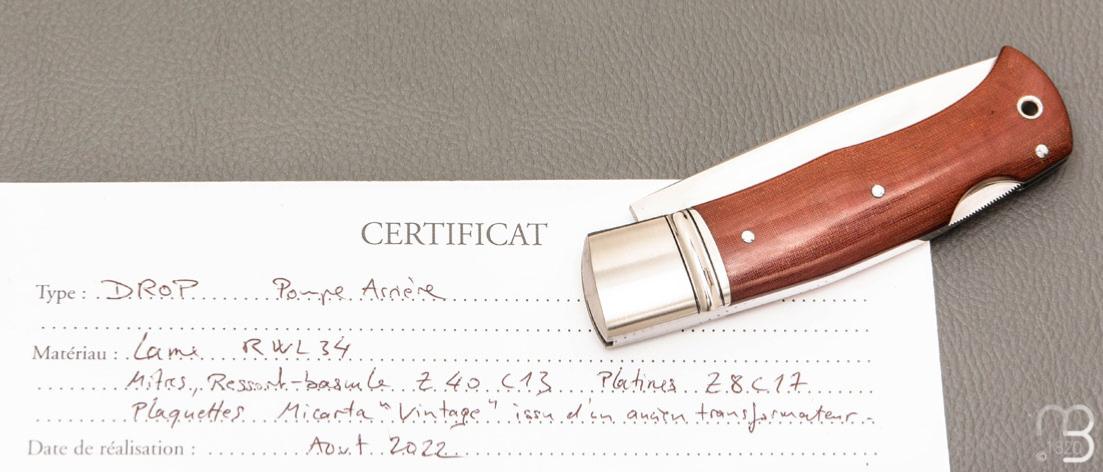 CERTIFICAT
Type : DROP Pompe Arrière
Matériau : Lame RWL 34
Mitres, Ressort-bascule Z 40 C 13 Platines Z 8 C 17
Plaquettes Micarta "Vintage" issu d'un ancien transformateur.
Date de réalisation : Aout 2022